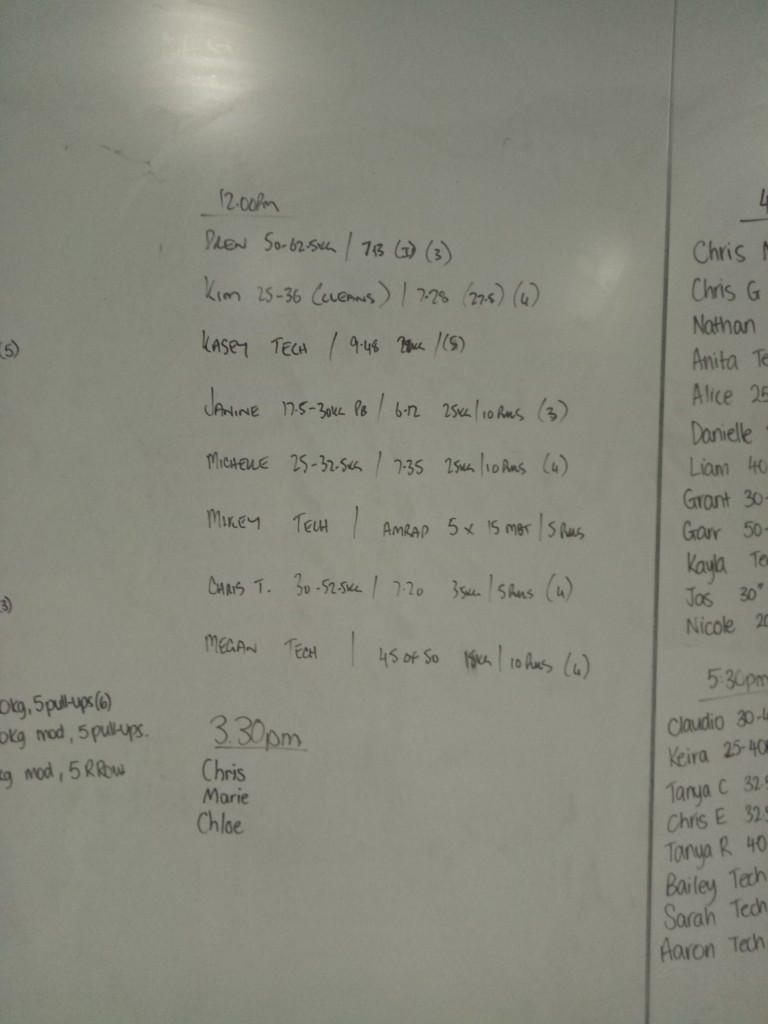 (5)
3)
0kg, 5 pull-ups (6)
0kg mod, 5 pull-ups.
kg mod, 5 RRow
12.00pm
DREW 50-62.5KG / 7.13 (3)
KIM 25-36 (CLEANS) / 7.28 (27.5) (4)
KASEY TECH / 9.48 /(5)
JANINE 17.5-30KG PB / 6.12 25KG/10 RMS (3)
MICHELLE 25-32.5KG / 7.35 25KG/10 RMS (4)
MIKEY TECH / AMRAP 5 x 15 MBT / 5 RMS
CHRIS T. 30-52.5KG / 7.20 35KG / 5 RMS (4)
MEGAN TECH / 45 OF 50 15KG / 10 RMS (4)
3.30pm
Chris
Marie
Chloe
4
Chris
Chris G
Nathan
Anita Te
Alice 25
Danielle
Liam 40
Grant 30-
Garr 50-
Kayla Te
Jas 30
Nicole 20
5:30pm
Claudio 30-4
Keira 25-40
Tanya C 32.5
Chris E 32.5
Tanya R 40
Bailey Tech
Sarah Tech
Aaron Tech